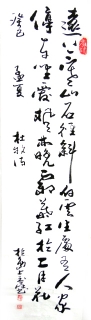 遠上寒山石徑斜白雲生處有人家
停車坐愛楓林晚霜葉紅於二月花
杜牧诗
癸巳孟夏